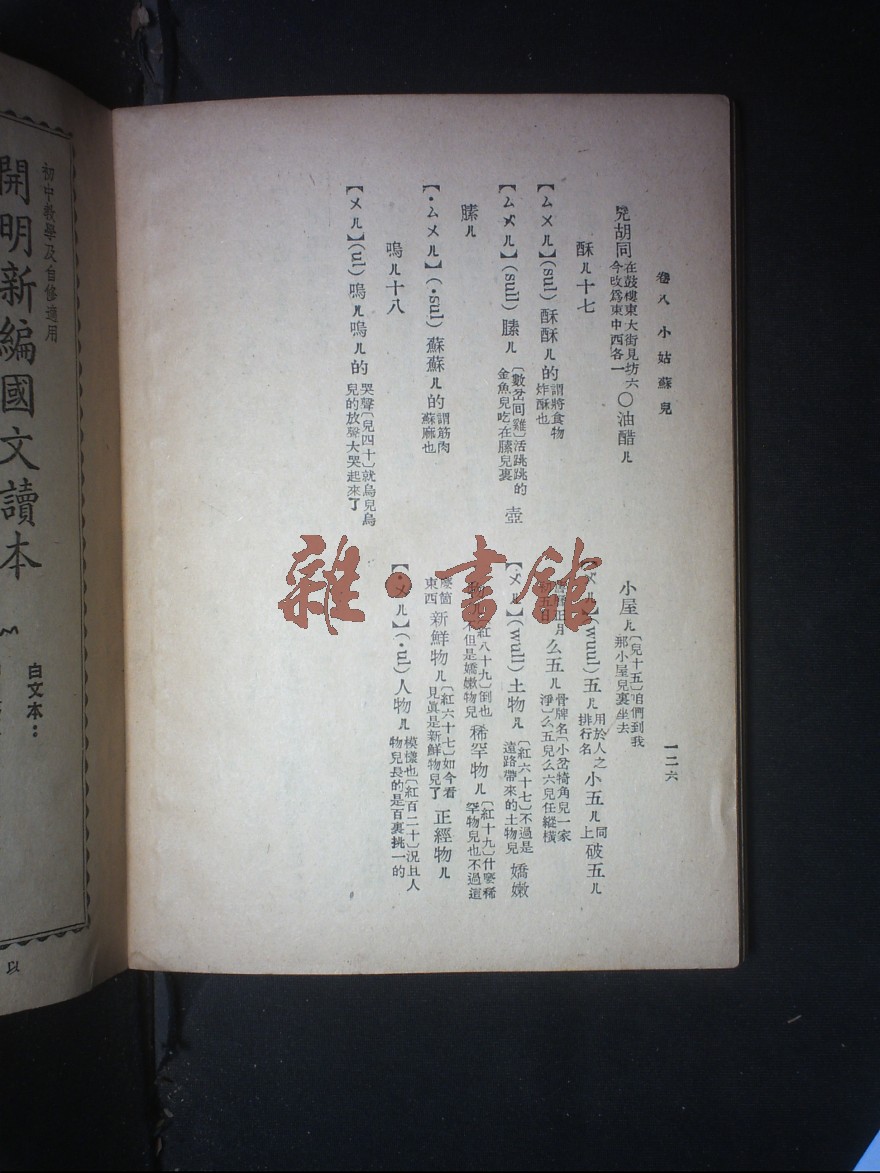 卷八 小姑蘇兒
一二六
兒胡同在鼓樓東大街見坊六今改爲東中西各一〇油醋ㄦ
酥ㄦ十七
【ㄙㄨㄦ】(sul)酥酥ㄦ的謂將食物炸酥也
【ㄙㄨˋㄦ】(sull)膆ㄦ〔數岔回雞〕活跳跳的金魚兒吃在膆兒裏 壺
膆ㄦ
【·ㄙㄨㄦ】(·sul)蘇蘇ㄦ的謂筋肉蘇麻也
嗚ㄦ十八
【ㄨㄦ】(ul)嗚ㄦ嗚ㄦ的哭聲〔兒四十〕就烏兒烏兒的放聲大哭起來了
小屋ㄦ〔兒十五〕咱們到我那小屋兒裏坐去
(wuul)五ㄦ用於人之排行名 小五ㄦ同上 破五ㄦ
正月 么五ㄦ骨牌名〔小岔犄角兒一家淨〕么五兒么六兒任縱橫
【ㄨˋㄦ】(wull)土物ㄦ〔紅六十七〕不過是遠路帶來的土物兒 嬌嫩
物ㄦ〔紅八十九〕倒也不但是嬌嫩物兒 稀罕物ㄦ〔紅十九〕什麼稀罕物兒也不過這
麼箇東西 新鮮物ㄦ〔紅六十七〕如今看見眞是新鮮物兒了 正經物ㄦ
【·ㄨㄦ】(·ul)人物ㄦ模樣也〔紅百二十〕況且人物兒長的是百裏挑一的
初中教學及自修適用
開明新編國文讀本
白文本：
以
雜·書館